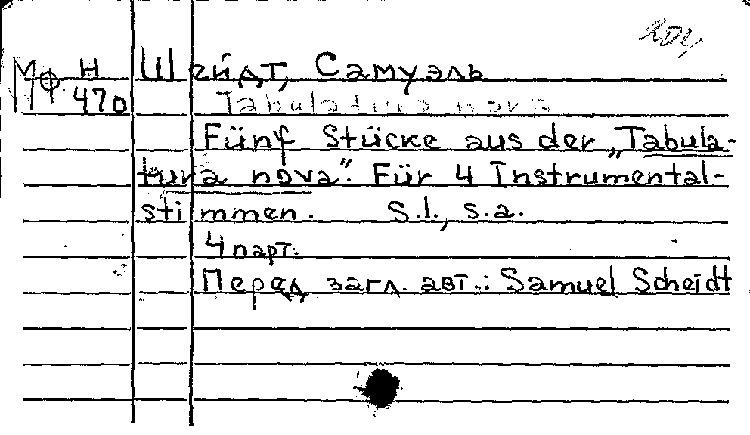 МФ Н Шейдт, Самуэль
470 Tabulatura nova
Fünf Stücke aus der „Tabula-
tura nova". Für 4 Instrumental-
stimmen. S.l., s.a.
4 парт.
Перед загл. авт.: Samuel Scheidt